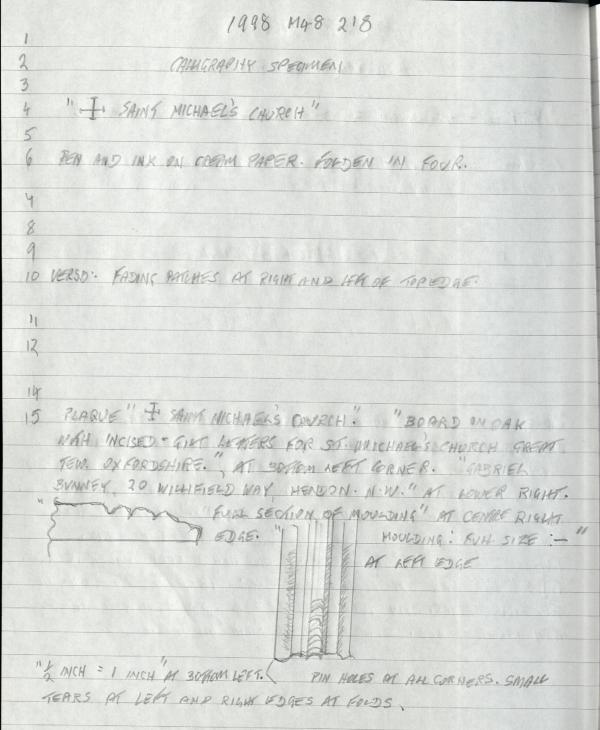 1998 M48 218
1
2 CALLIGRAPHY SPECIMEN
3
4 "☩ SAINT MICHAEL'S CHURCH"
5
6 PEN AND INK ON CREAM PAPER. FOLDEN IN FOUR.
8
9
10 VERSO: FADING PATCHES AT RIGHT AND LEFT OF TOP EDGE.
11
12
14
15 PLAQUE "☩ SAINT MICHAEL'S CHURCH". "BOARD IN OAK
WITH INCISED + GILT LETTERS FOR ST. MICHAEL'S CHURCH GREAT
TEW. OXFORDSHIRE.", AT BOTTOM LEFT CORNER. "GABRIEL
BUNNEY, 20 WILLIFIELD WAY, HENDON. N.W." AT LOWER RIGHT.
" "FULL SECTION OF MOULDING" AT CENTRE RIGHT
EDGE. " MOULDING: FULL SIZE :— "
AT LEFT EDGE
"½ INCH = 1 INCH" AT BOTTOM LEFT. PIN HOLES AT ALL CORNERS. SMALL
TEARS AT LEFT AND RIGHT EDGES AT FOLDS.